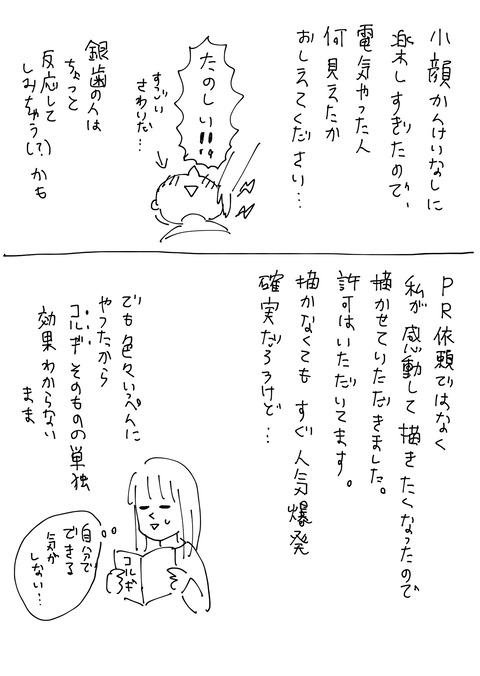 小顔かんけいなしに
楽しすぎたので、
電気やった人
何見えたか
おしえてください…
たのしい!!
すごい
さわいだ…
銀歯の人は
ちょっと
反応して
しみちゃう(?)かも
PR依頼ではなく
私が感動して描きたくなったので
描かせていただきました。
許可はいただいてます。
描かなくてもすぐ人気爆発
確実だろうけど…
でも色々いっぺんに
やったから
コルギそのものの単独
効果わからない
まま
コルギ
自分で
できる
気が
しない…